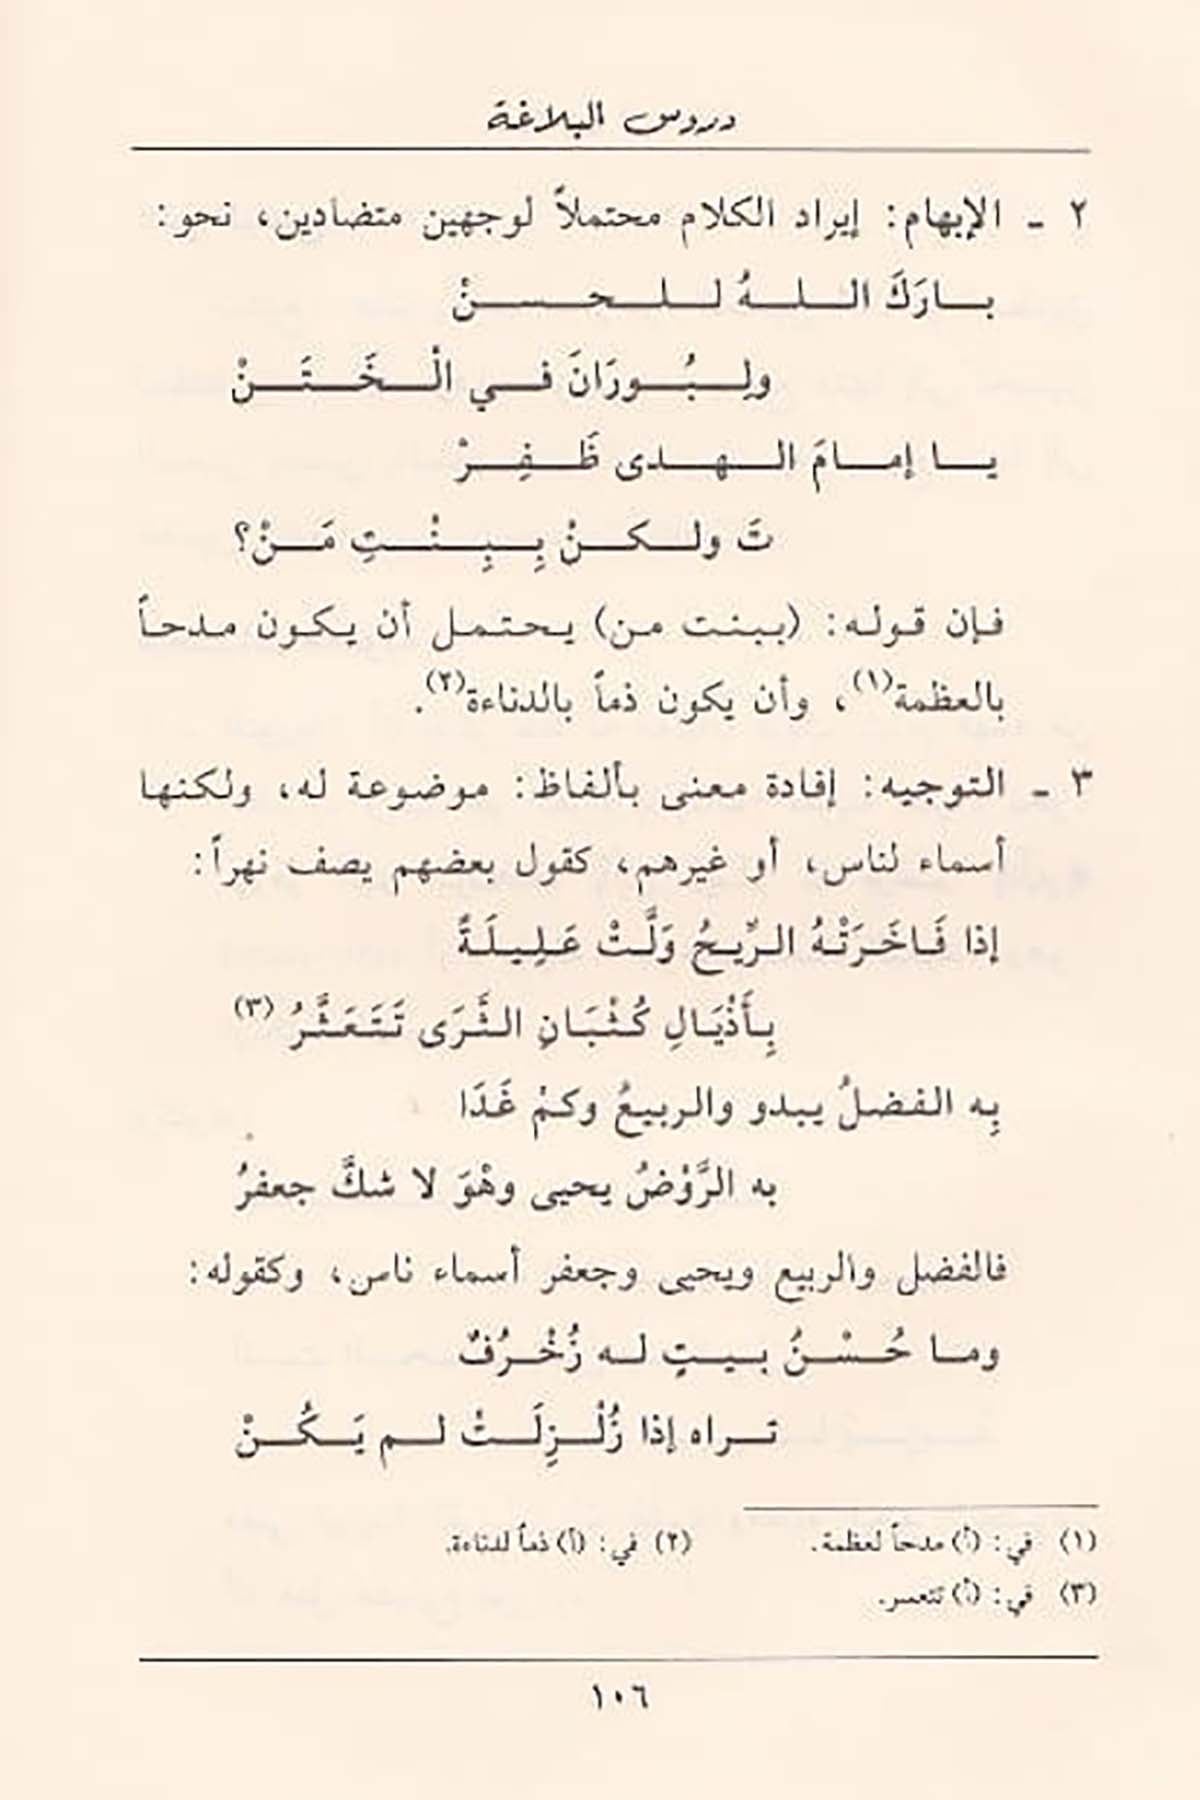 دروس البلاغة
٢ - الإبهام: إيراد الكلام محتملاً لوجهين متضادين، نحو:
بارَكَ اللهُ للحسنْ
ولِبُورَانَ في الْخَتَنْ
يا إمامَ الهدى ظَفِرْ
تَ ولكنْ بِبِنْتِ مَنْ؟
فإن قوله: (ببنت من) يحتمل أن يكون مدحاً
بالعظمة(١)، وأن يكون ذماً بالدناءة(٢).
٣ - التوجيه: إفادة معنى بألفاظ: موضوعة له، ولكنها
أسماء لناس، أو غيرهم، كقول بعضهم يصف نهراً:
إذا فَاخَرَتْهُ الرِّيحُ وَلَّتْ عَلِيلَةً
بِأَذْيَالِ كُثْبَانِ الثَّرَى تَتَعَثَّرُ (٣)
بِه الفضلُ يبدو والربيعُ وكمْ غَدَا
به الرَّوْضُ يحيى وهْوَ لا شكَّ جعفرُ
فالفضل والربيع ويحيى وجعفر أسماء ناس، وكقوله:
وما حُسْنُ بيتٍ له زُخْرُفٌ
تراه إذا زُلْزِلَتْ لم يَكُنْ
(١) في: (أ) مدحاً لعظمة. (٢) في: (أ) ذماً لدناءة.
(٣) في: (أ) تتعسر.
١٠٦